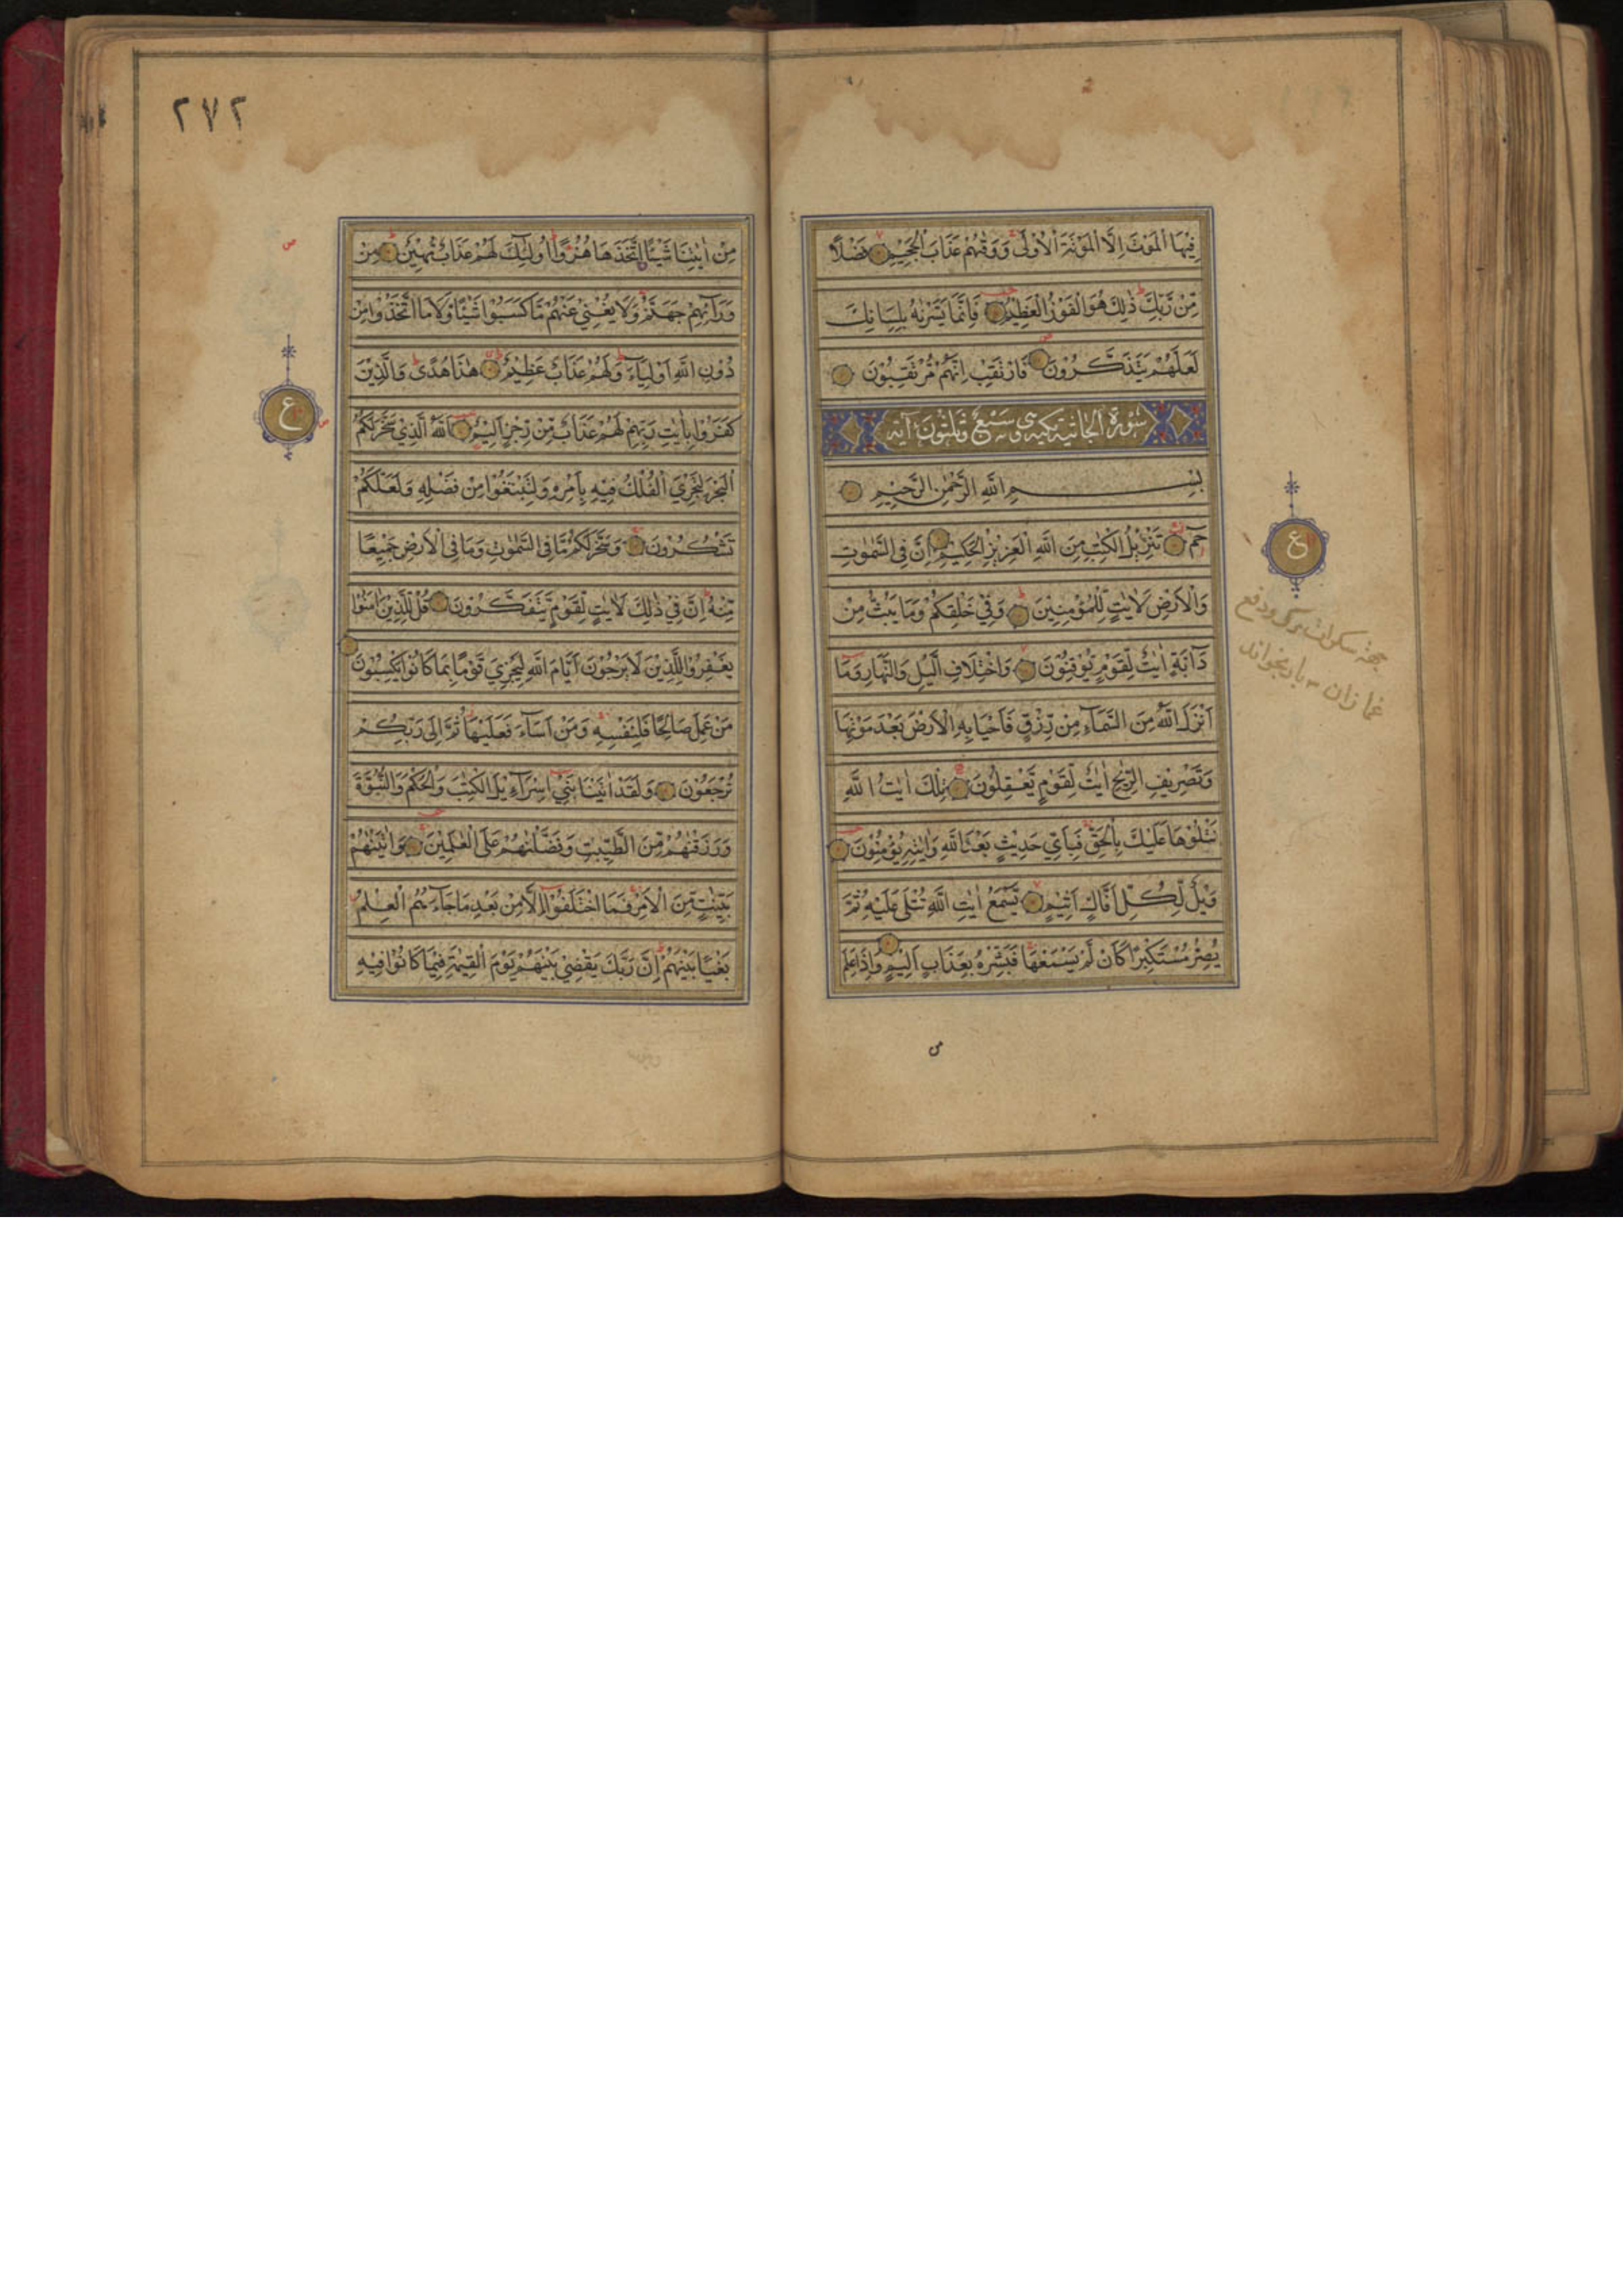 فِيْهَا الْمَوْتَ اِلَّا الْمَوْتَةَ الْاُوْلٰى وَوَقٰهُمْ عَذَابَ الْجَحِيْمِ فَضْلًا
مِّنْ رَّبِّكَ ذٰلِكَ هُوَ الْفَوْزُ الْعَظِيْمُ فَاِنَّمَا يَسَّرْنٰهُ بِلِسَانِكَ
لَعَلَّهُمْ يَتَذَكَّرُوْنَ فَارْتَقِبْ اِنَّهُمْ مُّرْتَقِبُوْنَ
سورة الجاثية مكية وهي سبع وثلثون آية
بِسْمِ اللّٰهِ الرَّحْمٰنِ الرَّحِيْمِ
حٰمٓ تَنْزِيْلُ الْكِتٰبِ مِنَ اللّٰهِ الْعَزِيْزِ الْحَكِيْمِ اِنَّ فِى السَّمٰوٰتِ
وَالْاَرْضِ لَاٰيٰتٍ لِّلْمُؤْمِنِيْنَ وَفِيْ خَلْقِكُمْ وَمَا يَبُثُّ مِنْ
دَآبَّةٍ اٰيٰتٌ لِّقَوْمٍ يُّوْقِنُوْنَ وَاخْتِلَافِ الَّيْلِ وَالنَّهَارِ وَمَآ
اَنْزَلَ اللّٰهُ مِنَ السَّمَآءِ مِنْ رِّزْقٍ فَاَحْيَا بِهِ الْاَرْضَ بَعْدَ مَوْتِهَا
وَتَصْرِيْفِ الرِّيٰحِ اٰيٰتٌ لِّقَوْمٍ يَّعْقِلُوْنَ تِلْكَ اٰيٰتُ اللّٰهِ
نَتْلُوْهَا عَلَيْكَ بِالْحَقِّ فَبِاَيِّ حَدِيْثٍ بَعْدَ اللّٰهِ وَاٰيٰتِهٖ يُؤْمِنُوْنَ
وَيْلٌ لِّكُلِّ اَفَّاكٍ اَثِيْمٍ يَّسْمَعُ اٰيٰتِ اللّٰهِ تُتْلٰى عَلَيْهِ ثُمَّ
يُصِرُّ مُسْتَكْبِرًا كَاَنْ لَّمْ يَسْمَعْهَا فَبَشِّرْهُ بِعَذَابٍ اَلِيْمٍ وَاِذَا عَلِمَ
ع
من
٢٧٢
مِنْ اٰيٰتِنَا شَيْئًا اتَّخَذَهَا هُزُوًا اُولٰٓئِكَ لَهُمْ عَذَابٌ مُّهِيْنٌ مِنْ
وَّرَآئِهِمْ جَهَنَّمُ وَلَا يُغْنِيْ عَنْهُمْ مَّا كَسَبُوْا شَيْئًا وَّلَا مَا اتَّخَذُوْا مِنْ
دُوْنِ اللّٰهِ اَوْلِيَآءَ وَلَهُمْ عَذَابٌ عَظِيْمٌ هٰذَا هُدًى وَالَّذِيْنَ
كَفَرُوْا بِاٰيٰتِ رَبِّهِمْ لَهُمْ عَذَابٌ مِّنْ رِّجْزٍ اَلِيْمٌ اَللّٰهُ الَّذِيْ سَخَّرَ لَكُمُ
الْبَحْرَ لِتَجْرِيَ الْفُلْكُ فِيْهِ بِاَمْرِهٖ وَلِتَبْتَغُوْا مِنْ فَضْلِهٖ وَلَعَلَّكُمْ
تَشْكُرُوْنَ وَسَخَّرَ لَكُمْ مَّا فِى السَّمٰوٰتِ وَمَا فِى الْاَرْضِ جَمِيْعًا
مِّنْهُ اِنَّ فِيْ ذٰلِكَ لَاٰيٰتٍ لِّقَوْمٍ يَّتَفَكَّرُوْنَ قُلْ لِّلَّذِيْنَ اٰمَنُوْا
يَغْفِرُوْا لِلَّذِيْنَ لَا يَرْجُوْنَ اَيَّامَ اللّٰهِ لِيَجْزِيَ قَوْمًا بِمَا كَانُوْا يَكْسِبُوْنَ
مَنْ عَمِلَ صَالِحًا فَلِنَفْسِهٖ وَمَنْ اَسَآءَ فَعَلَيْهَا ثُمَّ اِلٰى رَبِّكُمْ
تُرْجَعُوْنَ وَلَقَدْ اٰتَيْنَا بَنِيْٓ اِسْرَآءِيْلَ الْكِتٰبَ وَالْحُكْمَ وَالنُّبُوَّةَ
وَرَزَقْنٰهُمْ مِّنَ الطَّيِّبٰتِ وَفَضَّلْنٰهُمْ عَلَى الْعٰلَمِيْنَ وَاٰتَيْنٰهُمْ
بَيِّنٰتٍ مِّنَ الْاَمْرِ فَمَا اخْتَلَفُوْٓا اِلَّا مِنْ بَعْدِ مَا جَآءَهُمُ الْعِلْمُ
بَغْيًا بَيْنَهُمْ اِنَّ رَبَّكَ يَقْضِيْ بَيْنَهُمْ يَوْمَ الْقِيٰمَةِ فِيْمَا كَانُوْا فِيْهِ
ع